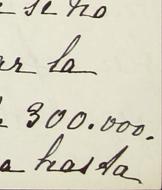 se ha
ar la
300.000.
a hasta